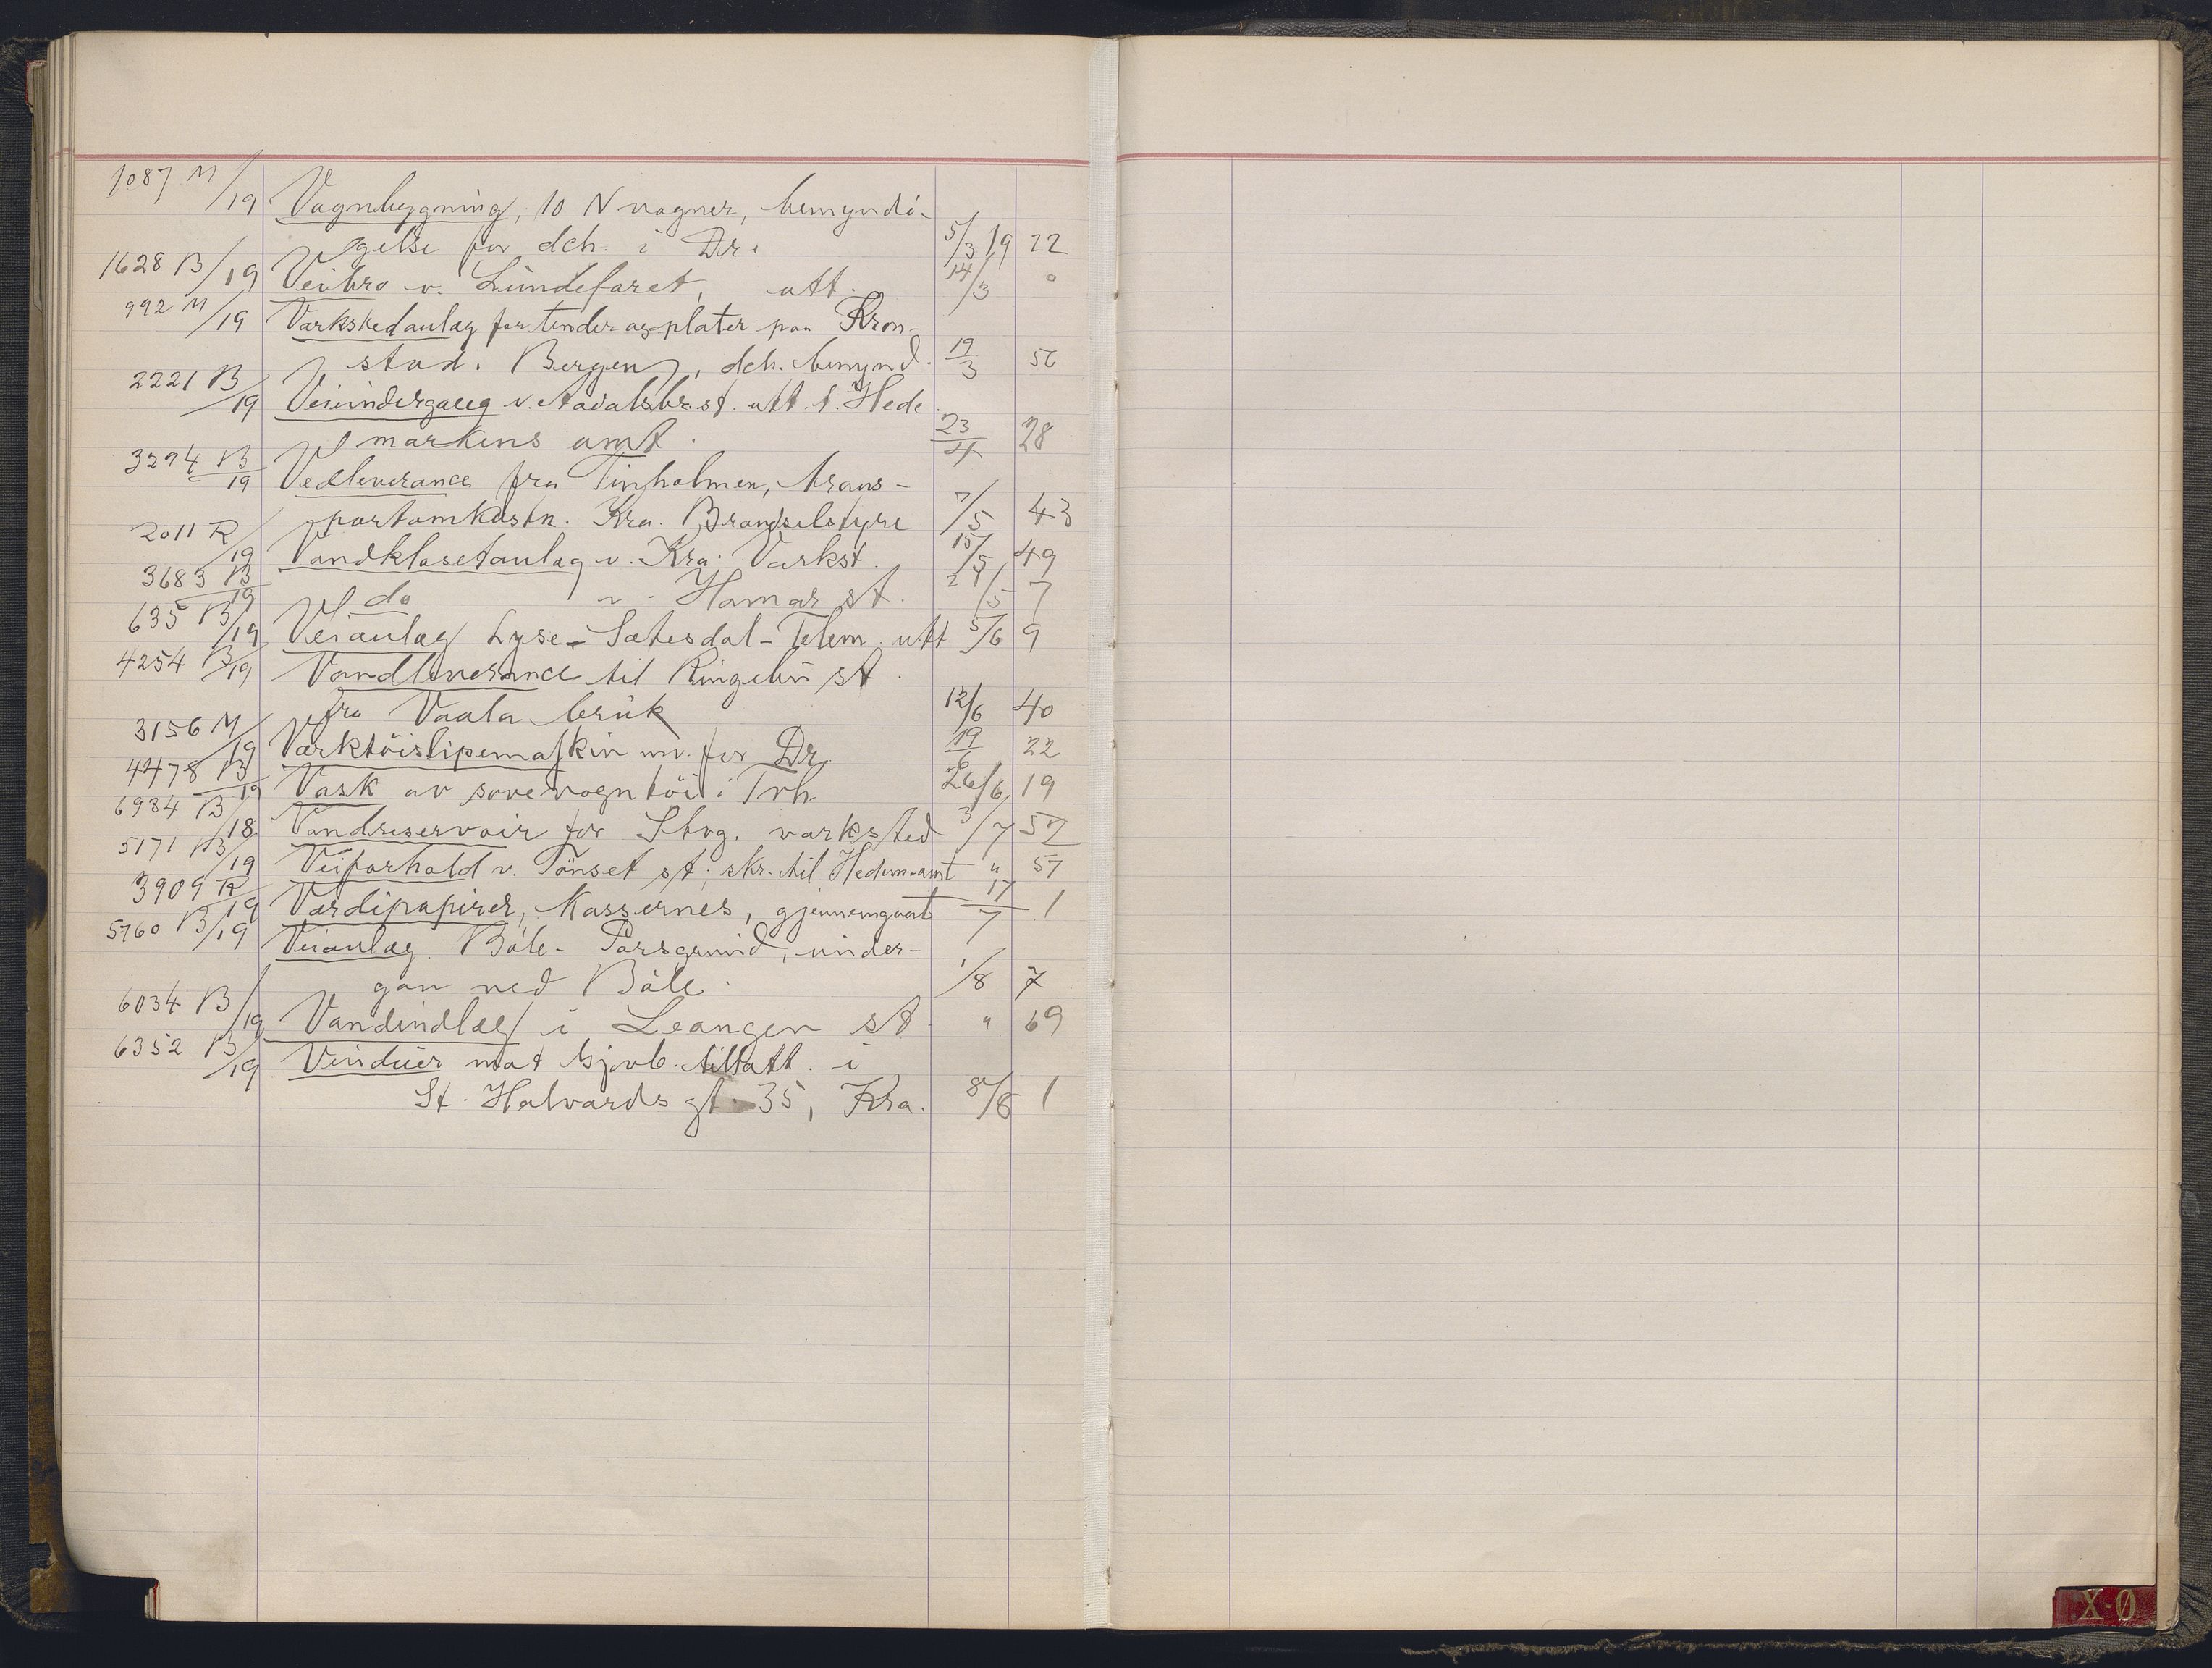 1087 M/19 Vognbygning, 10 N vogner, bemyndi-
gelse for dch. i Dr. 5/3 19 22
1628 B/19 Veibro v. Lundefaret, utt. 14/3 "
992 M/19 Verkstedanlæg for tender og plater paa Kron-
stad. Bergen, dch. bemynd. 19/3 56
2221 B/19 Veiundergang v. Aadalsbr. st. utt. t. Hede
markens amt. 23/4 28
3294 B/19 Vedleverance fra Tinholmen, trans-
portomkostn. Kra. Brændselstyre 7/5 43
2011 R/19 Vandklosetanlæg v. Kra. Verkst. 15/5 49
3683 B/19 do v. Hamar st. 24/5 7
635 B/19 Veianlæg Lyse-Sætesdal-Telem. utt 5/6 9
4254 B/19 Vandleverance til Ringebu st.
fra Vaala bruk 12/6 40
3156 M/19 Verktöislipemaskin for Dr. 19/6 22
4478 B/19 Vask av sovevogntöi i Trh. 26/6 19
6934 B/18 Vandreservoir for Stvg. verksted 3/7 52
5171 B/19 Veiforhold v. Tönset st; skr. til Hedem. amt " 57
3909 R/19 Værdipapirer, Kassernes, gjennemgaat 17/7 1
5760 B/19 Veianlæg. Böle-Porsgrund, under-
gan ved Böle. 1/8 7
6034 B/19 Vandindlæg i Leangen st. " 69
6352 B/19 Vinduer mot Gjovb. tillatt. i
St. Halvards gt. 35, Kra. 8/8 1
X-Ø